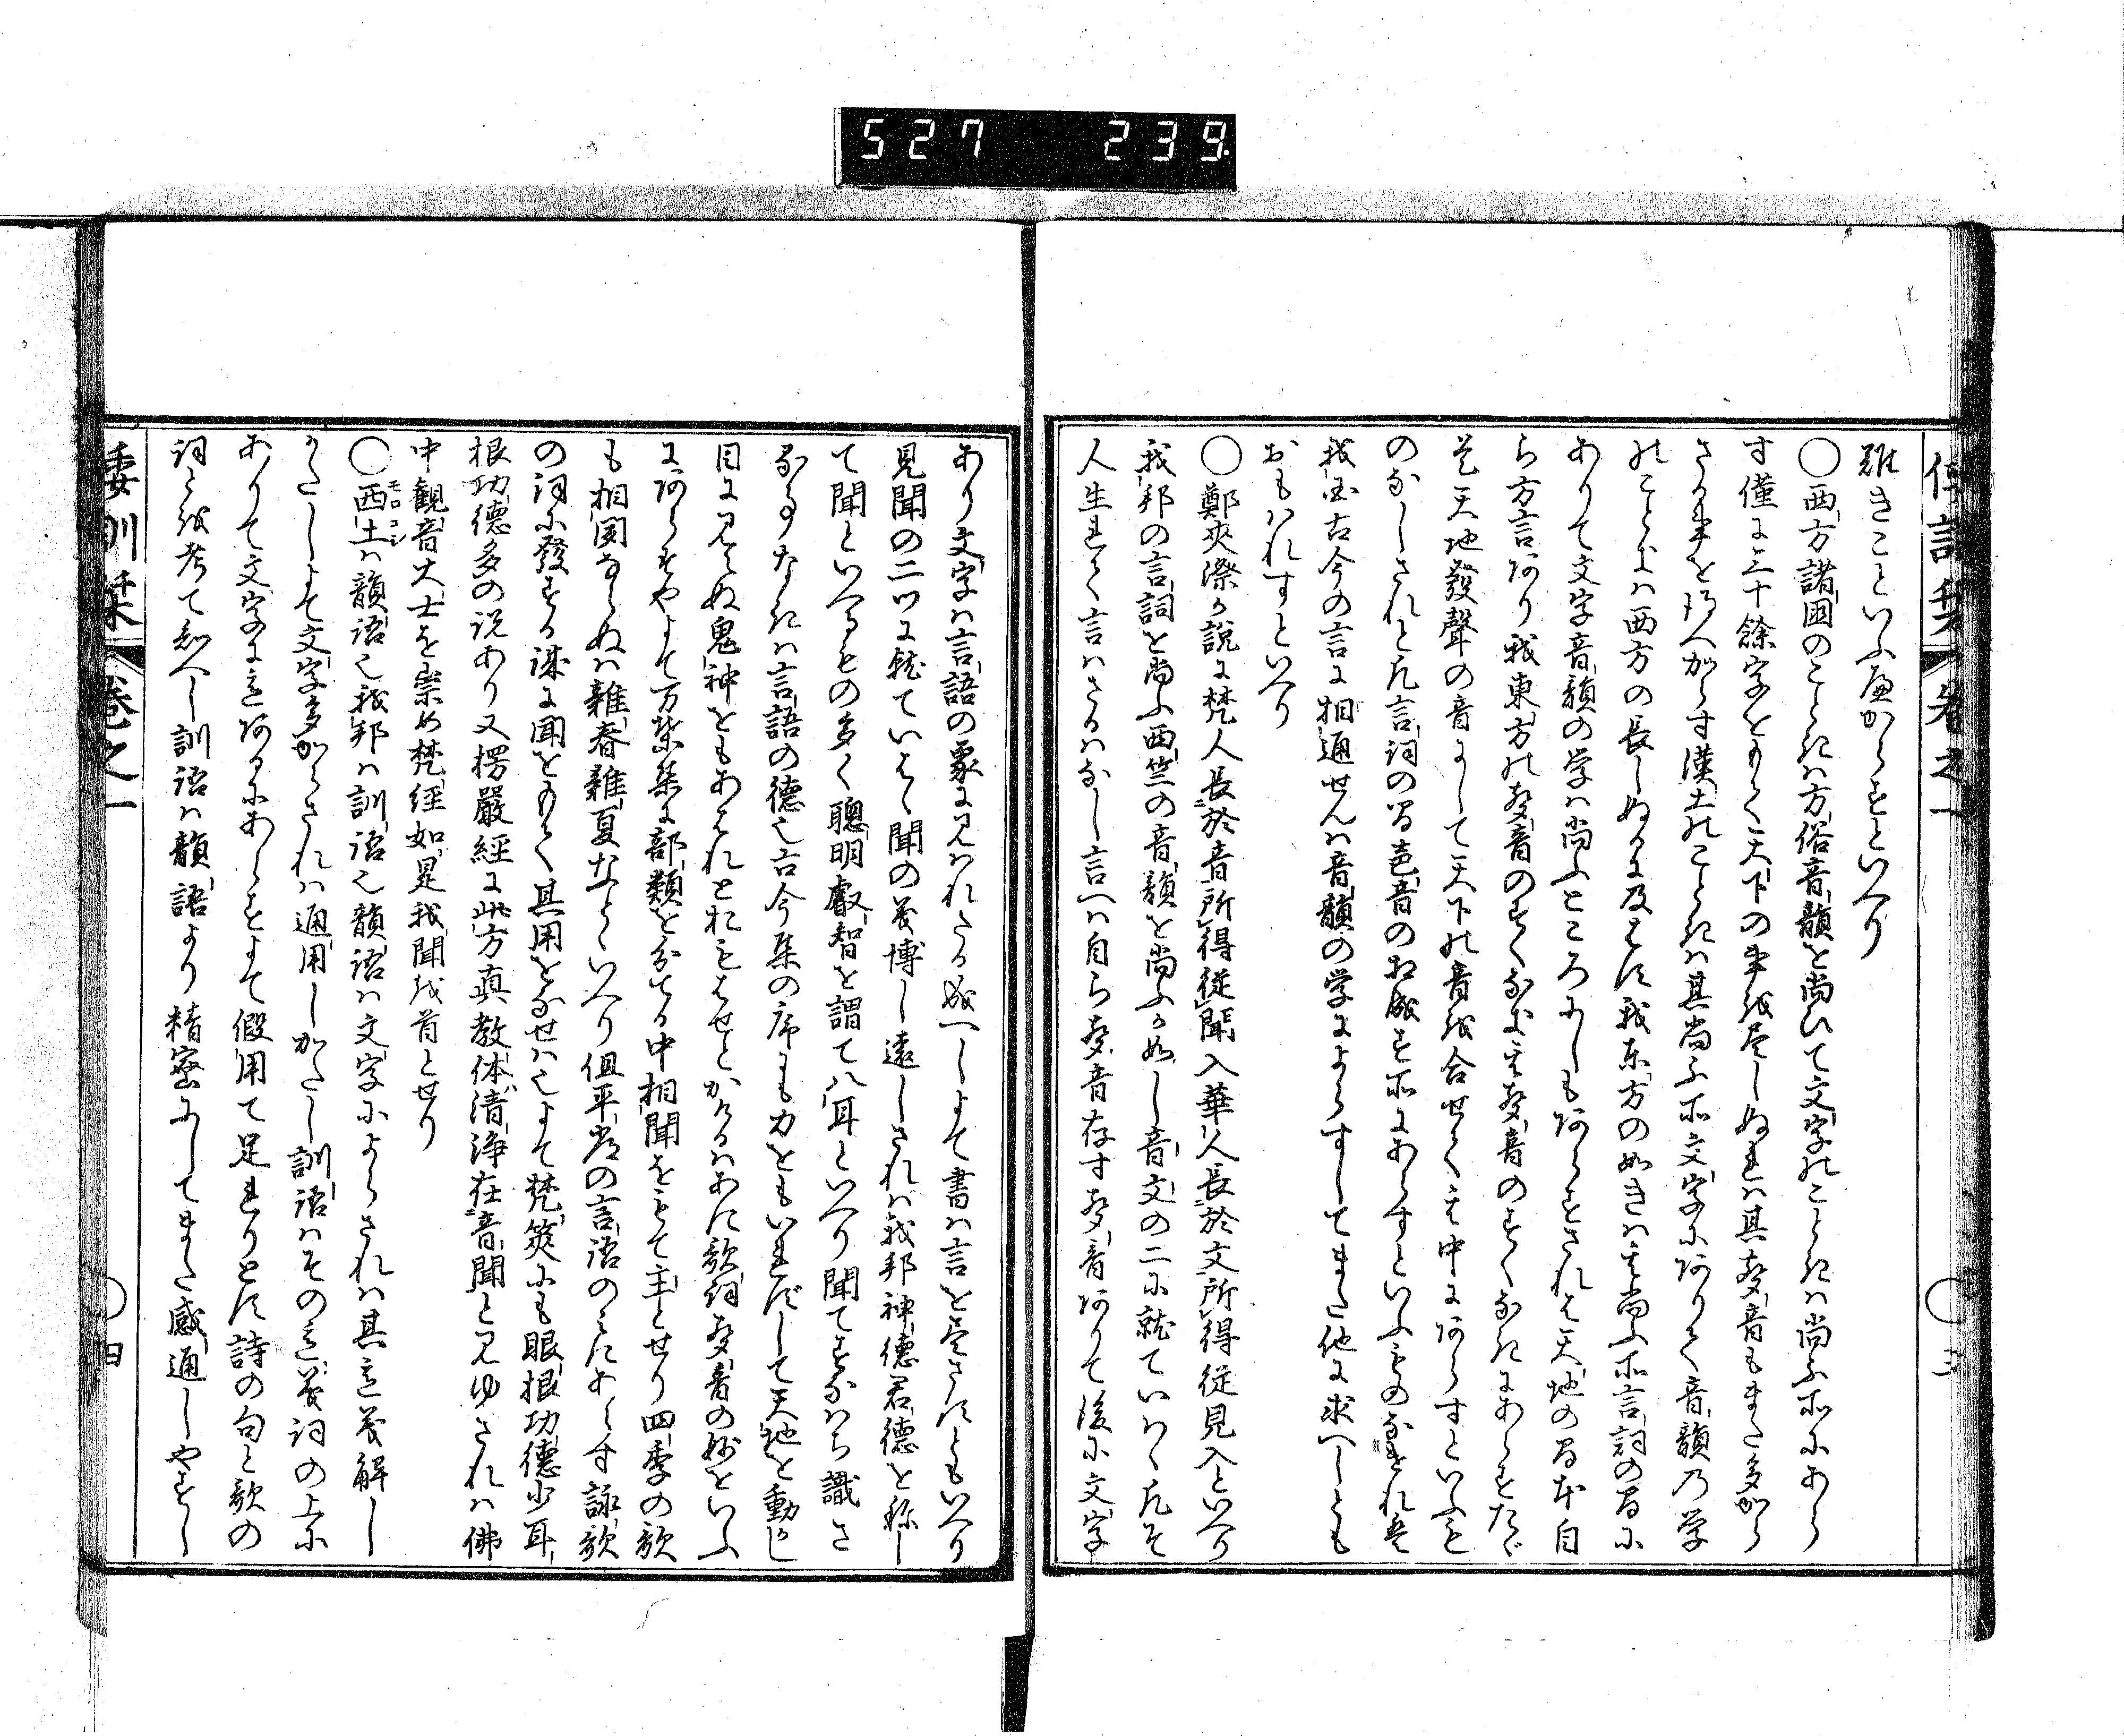 527 239
難きこといふへからすといへり
○西方諸国のこときは方俗音韻を尚ひて文字のこときは尚ふ所にあら
す僅に三十餘字をもて天下の事を尽しぬれは其聲音もまた多から
さる事を得へからす漢土のことは其尚ふ所文字にありて音韻乃学
のことは西方の長しぬるに及はす我東方の如きは其尚ふ所言詞の間に
ありて文字音韻の学は尚ふところにしもあらすされと天地の間本自
ら方言あり我東方の聲音のすくなき其聲音のすくなきにあらすたゝ
是天地發聲の音にして天下の音を合せて其中にあらすといふも
のなしされと凡言詞の間声音の相成す所にあらすといふものなけれは
我国古今の言に相通せんは音韻の学によらすしてまた他に求へしとも
おもはれすといへり
○鄭夾漈か説に梵人長於音所得從聞入華人長於文所得從見入といへり
我邦の言詞を尚ふ西竺の音韻を尚ふか如し音文の二に就ていはく凡そ
人生れて言はさるはなし言へは自ら聲音存す聲音ありて後に文字
あり文字は言語の象に見はれたる成へしよて書は言を尽さすともいへり
見聞の二つに就ていはゝ聞の義博し遠しされは我邦神德君德を称し
て聞といへるもの多く聰明叡智を謂て八耳といへり聞てすなはち識さ
るゆゑなれは言語の德也古今集の序にも力をもいれすして天地を動かし
目に見えぬ鬼神をもあはれとおもはせとかけるはあに歌詞聲音の妙をいふ
にあらすやよて万葉集に部類を分ける中相聞をもて主とせり四季の歌
も相関ならぬは雜春雜夏なといへり但平常の言語のみにあらす詠歌
の詞に發する誰に聞をもて其用をなせは也よて梵筴にも眼根功德少耳
根功德多の説あり又楞嚴經に此方真教体清淨在音聞と見ゆされは佛
中觀音大士を崇め梵經如是我聞を首とせり
○西土は韻語也我邦は訓語也韻語は文字によらされは其意義解し
かたしよて文字多からされは通用しかたし訓語はその意義詞の上に
ありて文字の意あるにあらすよて假用て足れりとす詩の句と歌の
詞とを考て知へし訓語は韻語より精密にしてまた感通しやすし
倭訓栞 卷之一 ○三
倭訓栞 卷之一 ○四
モロコシ